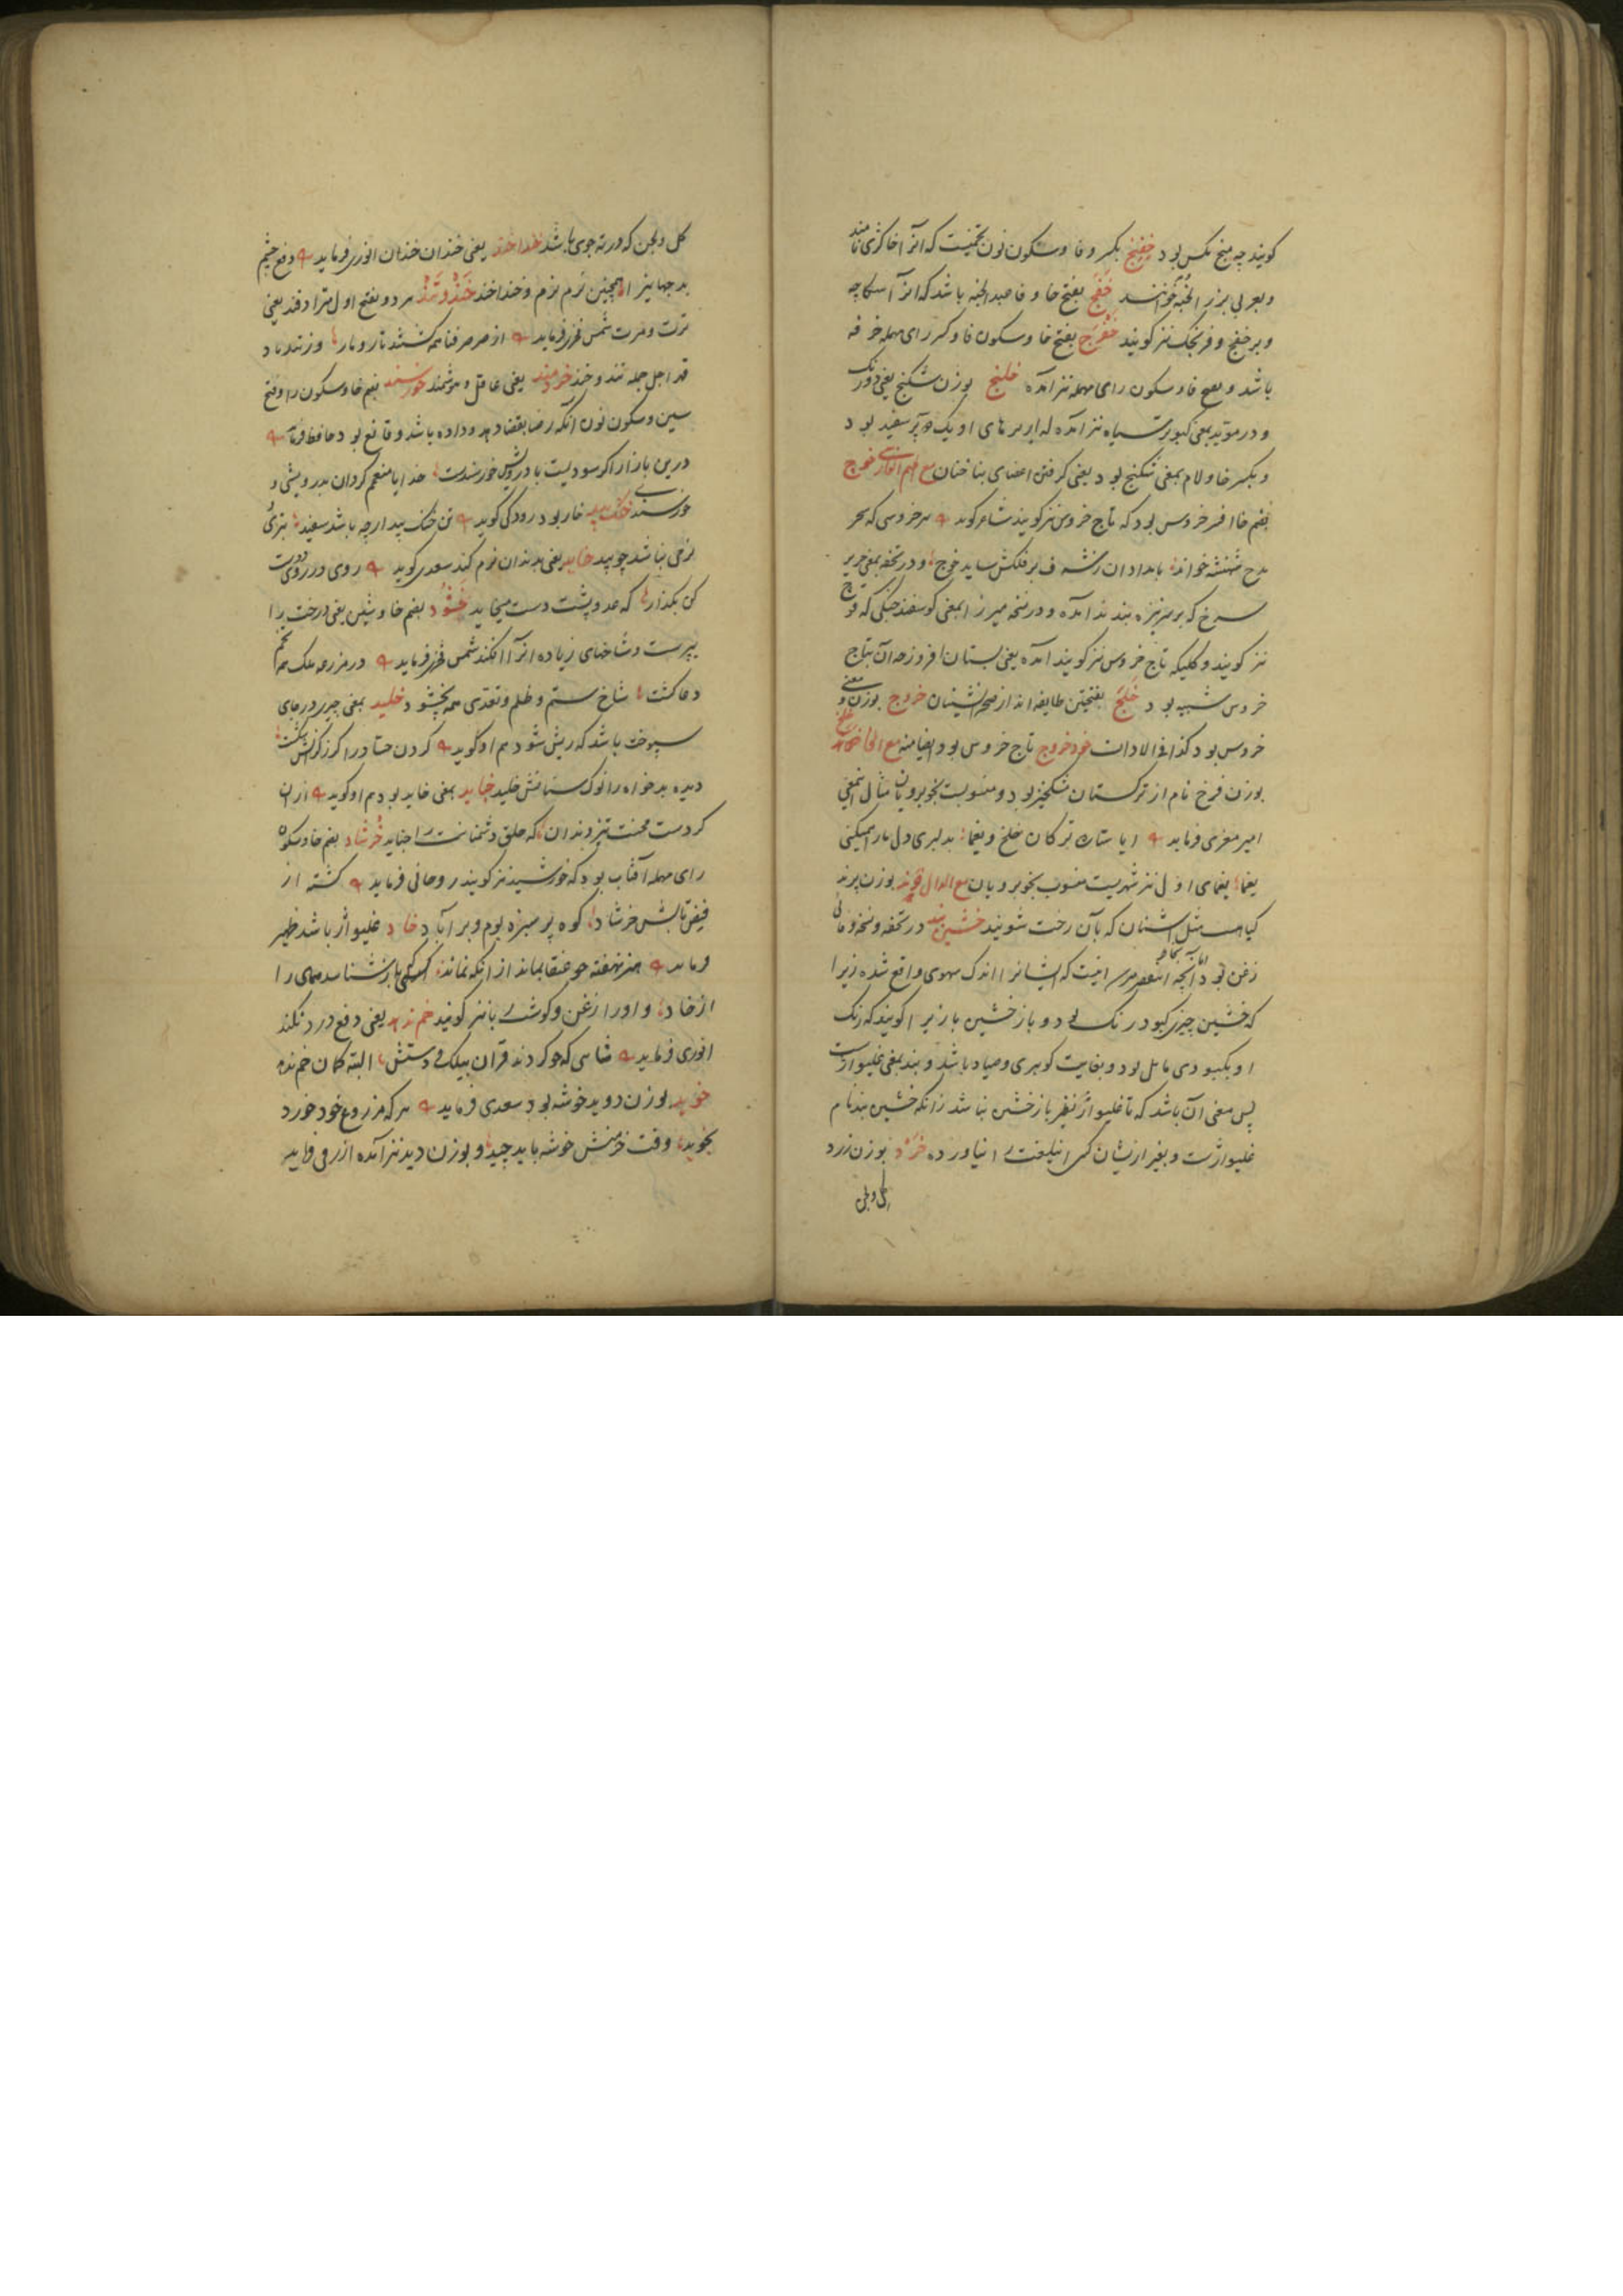 کویند چه منج مکس بود خفنج بکسر و فا و سکون نون تخمیست که آنرا خاکژی نامند
و بعربی بزر الخبه خوانند خفج بفتح خا و فا صبد الخبه باشد که آنرا
و برخفج و فرنجک نیز کویند خفرج بفتح خا و سکون فا و کسر رای مهمله خرفه
باشد و بفتح فا و سکون رای مهمله نیز آمده خلنج بوزن شکنج یعنی دورنک
و در موید بمعنی کبوتر سیاه نیز آمده که او یک پر سفید بود
و بکسر خا و لام بمعنی شکنج بود یعنی کرفتن اعضای بناخنان مع الجیم الفارسی خوج
بضم خا افسر خروس بود که تاج خروس نیز کویند شاعر کوید هر خروسی که سحر
مدح شهنشه خواند بامدادان بر فلکش ساید خوج و در تحفه بمعنی حریر
سرخ که بر سر نیزه بندند آمده و در نسخه میرزا بمعنی کوسفند جنکی که قوچ
نیز کویند و کلیکه تاج خروس نیز کویند آمده یعنی بستان افروز چه آن بتاج
خروس شبیه بود خلج بفتحتین طایفه اند از صحرانشینان خروج بوزن و معنی
خروس بود کذا فی الادات خود خروج تاج خروس بود ایضا منه مع الخا خلخ
بوزن فرخ نام از ترکستان مشکخیز بود و منسوبست بخوبرویان مثال اینمعنی
امیر معزی فرماید ایا ستاره ترکان خلخ و یغما بدلبری دل ما را همیکنی
یغما یغمای اول نیز شهریست منسوب بخوبرویان مع الدال خوند بوزن پرند
کیاهست مثل اشنان که بآن رخت شویند خشین بند در تحفه و نسخه وفائی
زغن بود اما آنچه اینست که ایشانرا اندک سهوی واقع شده زیرا
که خشین چیزی کبود رنک بود و باز خشین بازیرا کویند که رنک
او بکبودی مایل بود و بغایت کوهری و صیاد باشد و بند بمعنی غلیواژست
پس معنی آن باشد که تا غلیواژ نظیر باز خشین نباشد زانکه خشین بند نام
غلیواژست و بغیر ازیشان کسی این لغت را نیاورده خرد بوزن زرد
کل و لجن
کل و لجن که در ته جوی باشد خنداخند یعنی خندان خندان انوری فرماید دفع چشم
بد جهانیرا همچنین نرم نرم و خنداخند خند و تند هر دو بفتح اول مترادفند یعنی
ترت و مرت شمس فخر فرماید از صرصر فنا همه کشتند تار و مار وز تندباد
قهر اجل جمله تند و خند خردمند یعنی عاقل و هوشمند خورسند بضم خا و سکون را و فتح
سین و سکون نون آنکه رضا بقضا داده باشد و قانع بود حافظ فرماید
درین بازار اکر سودیست با درویش خورسندست خدایا منعمم کردان بدرویشی و
خورسندی خنک بید خار بود رودکی کوید تن خنک بید ارچه باشد سفید بتری
نرمی نباشد چو بید خاید یعنی بدندان نرم کند سعدی کوید روی در روی دوست
کن بکذار که عدو پشت دست میخاید خشود بضم خا و شین یعنی درخت را
بپیرست و شاخهای زیاده آنرا افکند شمس فخر فرماید در مزرعه ملک همه تخم
دعا کشت شاخ ستم و ظلم و تعدی همه بخشود خلید بمعنی چیزی در جای
سپوخت باشد که ریش شود هم او کوید کردن حساد را کرز کرانش شکست
دیده بدخواه را نوک سنانش خلید خباید بمعنی خاید بود هم او کوید از آن
کردست محنت تیز دندان که حلق دشمنانت را خباید خرشاد بضم خا و سکون
رای مهمله آفتاب بود که خورشید نیز کویند روحانی فرماید کشته از
فیض تابش خرشاد کوه پر سبزه بوم و بر آباد خاد غلیواژ باشد ظهیر
فرماید هنر نهفته چو عنقا بماند از آنکه نماند کسی که باز شناسد همای را
از خاد و او را زغن و کوشت ربا نیز کویند خم ندهد یعنی دفع درد نکند
انوری فرماید شاهی که چو کردند قران بیلک و دستش البته کمان خم ندهد
خوید بوزن دوید خوشه بود سعدی فرماید هر که مزروع خود خورد
بخوید وقت خرمنش خوشه باید چید و بوزن دید نیز آمده ازرقی فرماید